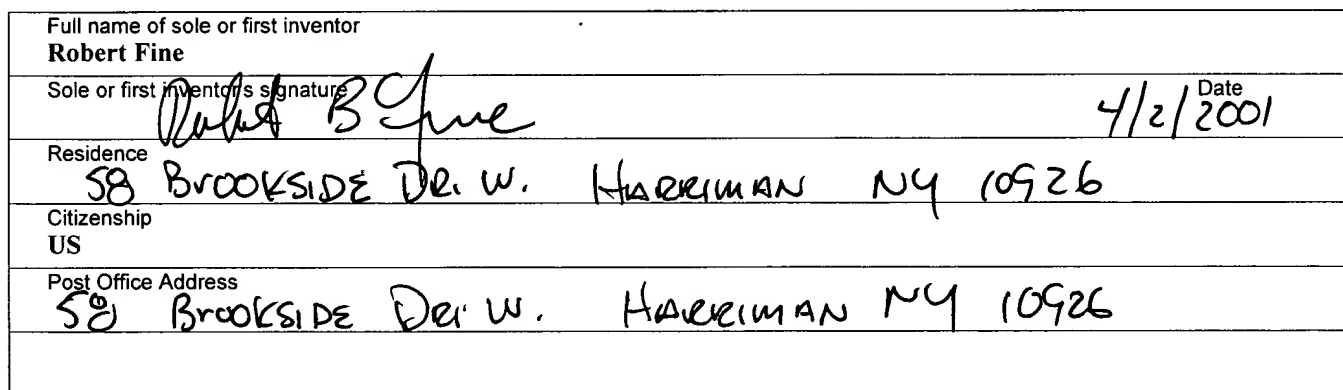 Full name of sole or first inventor
Robert Fine
Sole or first inventor's signature Date
Robert B Fine 4/2/2001
Residence
58 BROOKSIDE DR. W. HARRIMAN NY 10926
Citizenship
US
Post Office Address
58 BROOKSIDE DR. W. HARRIMAN NY 10926